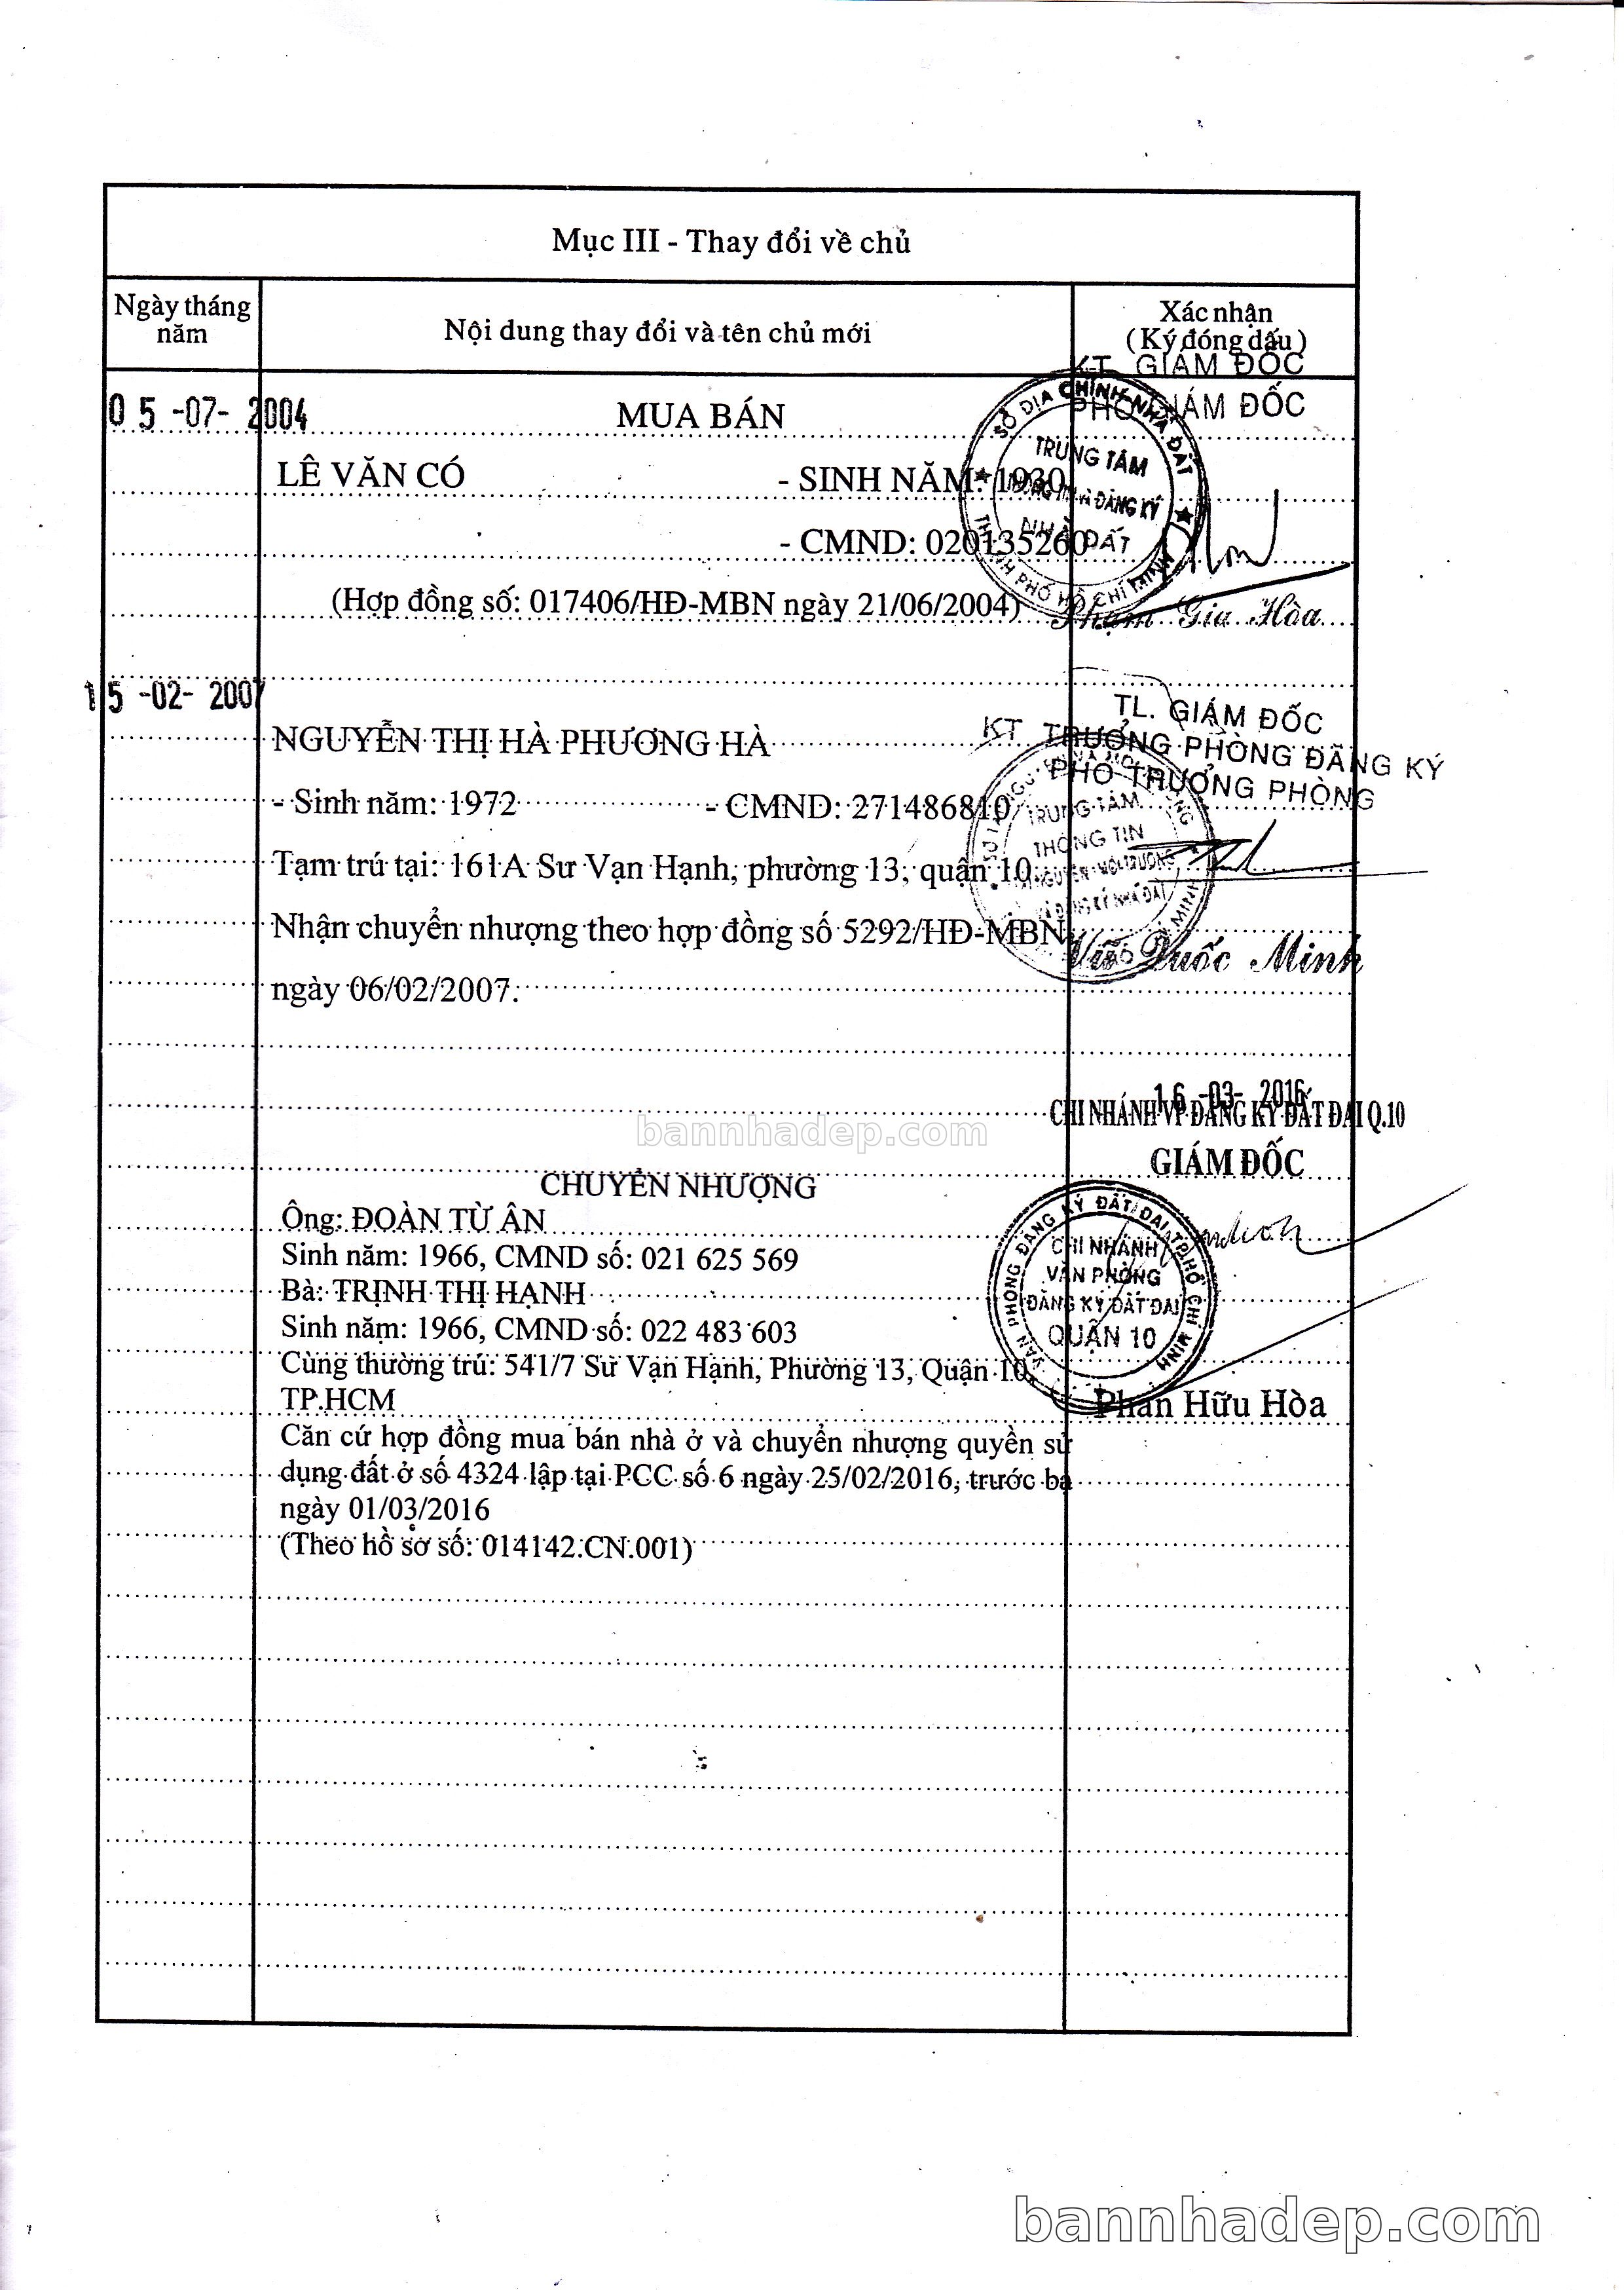 Mục III - Thay đổi về chủ
Ngày tháng
năm
Nội dung thay đổi và tên chủ mới
Xác nhận
(Ký đóng dấu)
KT. GIÁM ĐỐC
PHÓ GIÁM ĐỐC
05-07-2004
MUA BÁN
LÊ VĂN CÓ - SINH NĂM: 1930
- CMND: 020135260
(Hợp đồng số: 017406/HĐ-MBN ngày 21/06/2004)
SỞ ĐỊA CHÍNH-NHÀ ĐẤT
TRUNG TÂM
THÔNG TIN VÀ ĐĂNG KÝ
NHÀ ĐẤT
THÀNH PHỐ HỒ CHÍ MINH
Phạm Gia Hòa
15-02-2007
TL. GIÁM ĐỐC
KT TRƯỞNG PHÒNG ĐĂNG KÝ
PHÓ TRƯỞNG PHÒNG
NGUYỄN THỊ HÀ PHƯƠNG HÀ
- Sinh năm: 1972 - CMND: 271486810
Tạm trú tại: 161A Sư Vạn Hạnh, phường 13, quận 10.
Nhận chuyển nhượng theo hợp đồng số 5292/HĐ-MBN
ngày 06/02/2007.
TRUNG TÂM
THÔNG TIN
TÀI NGUYÊN - MÔI TRƯỜNG
VÀ ĐĂNG KÝ NHÀ ĐẤT
Quốc Minh
16-03-2016
CHI NHÁNH VP ĐĂNG KÝ ĐẤT ĐAI Q.10
GIÁM ĐỐC
bannhadep.com
CHUYỂN NHƯỢNG
Ông: ĐOÀN TỪ ÂN
Sinh năm: 1966, CMND số: 021 625 569
Bà: TRỊNH THỊ HẠNH
Sinh năm: 1966, CMND số: 022 483 603
Cùng thường trú: 541/7 Sư Vạn Hạnh, Phường 13, Quận 10,
TP.HCM
Căn cứ hợp đồng mua bán nhà ở và chuyển nhượng quyền sử
dụng đất ở số 4324 lập tại PCC số 6 ngày 25/02/2016, trước bạ
ngày 01/03/2016
(Theo hồ sơ số: 014142.CN.001)
VĂN PHÒNG ĐĂNG KÝ ĐẤT ĐAI TP HỒ CHÍ MINH
CHI NHÁNH
VĂN PHÒNG
ĐĂNG KÝ ĐẤT ĐAI
QUẬN 10
Phan Hữu Hòa
bannhadep.com